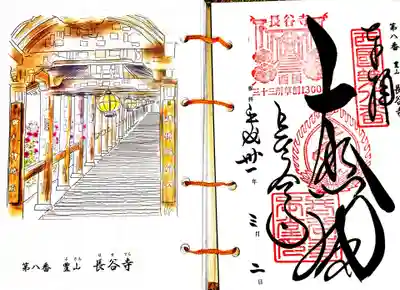 第八番 豊山 長谷寺
第八番 豊山 長谷寺
奉拝
大悲閣
長谷寺
長谷寺
三十三所草創1300
平成卅一年三月二日